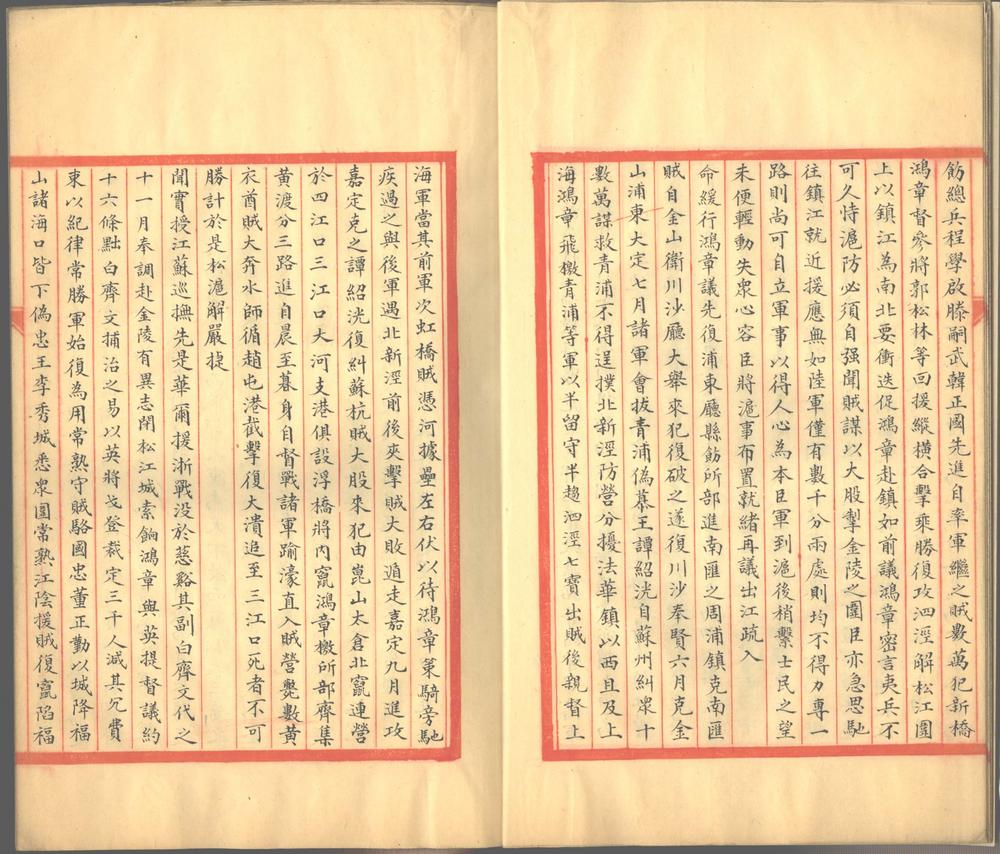 飭總兵程學啟滕嗣武韓正國先進自率軍繼之賊數萬犯新橋
鴻章督參將郭松林等回援縱橫合擊乘勝復攻泗涇解松江圍
上以鎮江為南北要衝迭促鴻章赴鎮如前議鴻章密言夷兵不
可久恃滬防必須自强聞賊謀以大股掣金陵之圍臣亦急思馳
往鎮江就近援應無如陸軍僅有數千分兩處則均不得力專一
路則尚可自立軍事以得人心為本臣軍到滬後稍繫士民之望
未便輕動失衆心容臣將滬事布置就緒再議出江疏入
命緩行鴻章議先復浦東廳縣飭所部進南匯之周浦鎮克南匯
賊自金山衛川沙廳大舉來犯復破之遂復川沙奉賢六月克金
山浦東大定七月諸軍會拔青浦偽慕王譚紹洸自蘇州糾衆十
數萬謀救青浦不得逞撲北新涇防營分擾法華鎮以西且及上
海鴻章飛檄青浦等軍以半留守半趨泗涇七寶出賊後親督上
海軍當其前軍次虹橋賊憑河據壘左右伏以待鴻章策騎旁馳
疾過之與後軍遇北新涇前後夾擊賊大敗遁走嘉定九月進攻
嘉定克之譚紹洸復糾蘇杭賊大股來犯由崑山太倉北竄連營
於四江口三江口大河支港俱設浮橋將內竄鴻章檄所部齊集
黃渡分三路進自晨至暮身自督戰諸軍踰濠直入賊營斃數黃
衣酋賊大奔水師循趙屯港截擊復大潰追至三江口死者不可
勝計於是松滬解嚴捷
聞實授江蘇巡撫先是華爾援浙戰没於慈谿其副白齊文代之
十一月奉調赴金陵有異志閉松江城索餉鴻章與英提督議約
十六條黜白齊文捕治之易以英將戈登裁定三千人減其冗費
束以紀律常勝軍始復為用常熟守賊駱國忠董正勤以城降福
山諸海口皆下偽忠王李秀城悉衆圍常熟江陰援賊復竄陷福